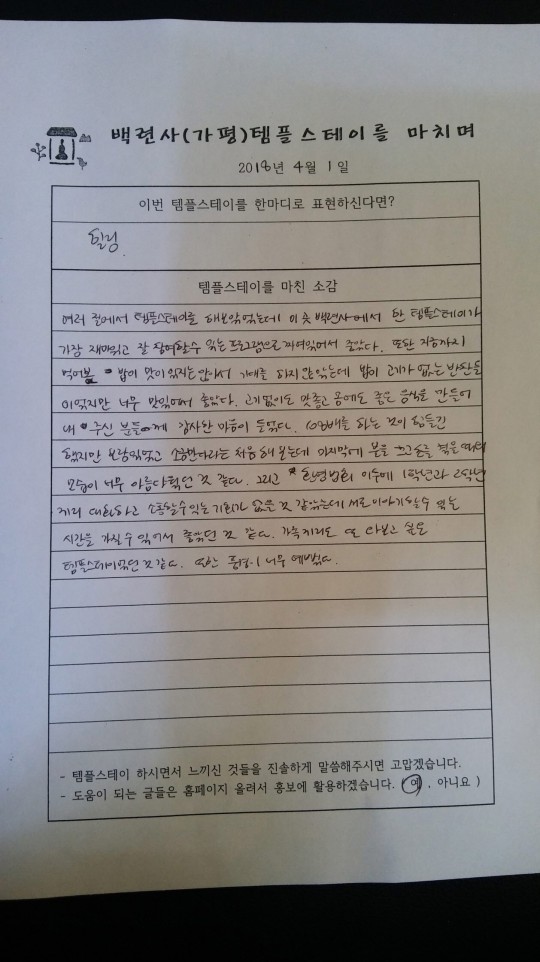 백련사(가평)템플스테이를 마치며
2018년 4월 1일
이번 템플스테이를 한마디로 표현하신다면?
힐링
템플스테이를 마친 소감
여러 절에서 템플스테이를 해보았었는데 이 곳 백련사에서 한 템플스테이가
가장 재미있고 잘 참여할수 있는 프로그램으로 짜여있어서 좋았다. 또한 지금까지
먹어봄 밥이 맛이 있지는 않아서 기대를 하지 않았는데 밥이 고기가 없는 반찬들
이었지만 너무 맛있어서 좋았다. 고기없이도 맛좋고 몸에도 좋은 음식을 만들어
내 주신 분들께 감사한 마음이 들었다. 108배를 하는 것이 힘들긴
했지만 보람있었고 소금만다라는 처음 해 보는데 마지막에 본을 뜨고 손을 묶을 때의
모습이 너무 아름다웠던 것 같다. 그리고 이후에 1학년과 2학년
끼리 대화하고 소통할수있는 기회가 없을 것 같았는데 서로 이야기할수 있는
시간을 가질수 있어서 좋았던 것 같다. 가족끼리도 또 와보고 싶은
템플스테이였던 것 같다. 또한 풍경이 너무 예뻤다.
- 템플스테이 하시면서 느끼신 것들을 진솔하게 말씀해주시면 고맙겠습니다.
- 도움이 되는 글들은 홈페이지 올려서 홍보에 활용하겠습니다. ( 예 , 아니요 )